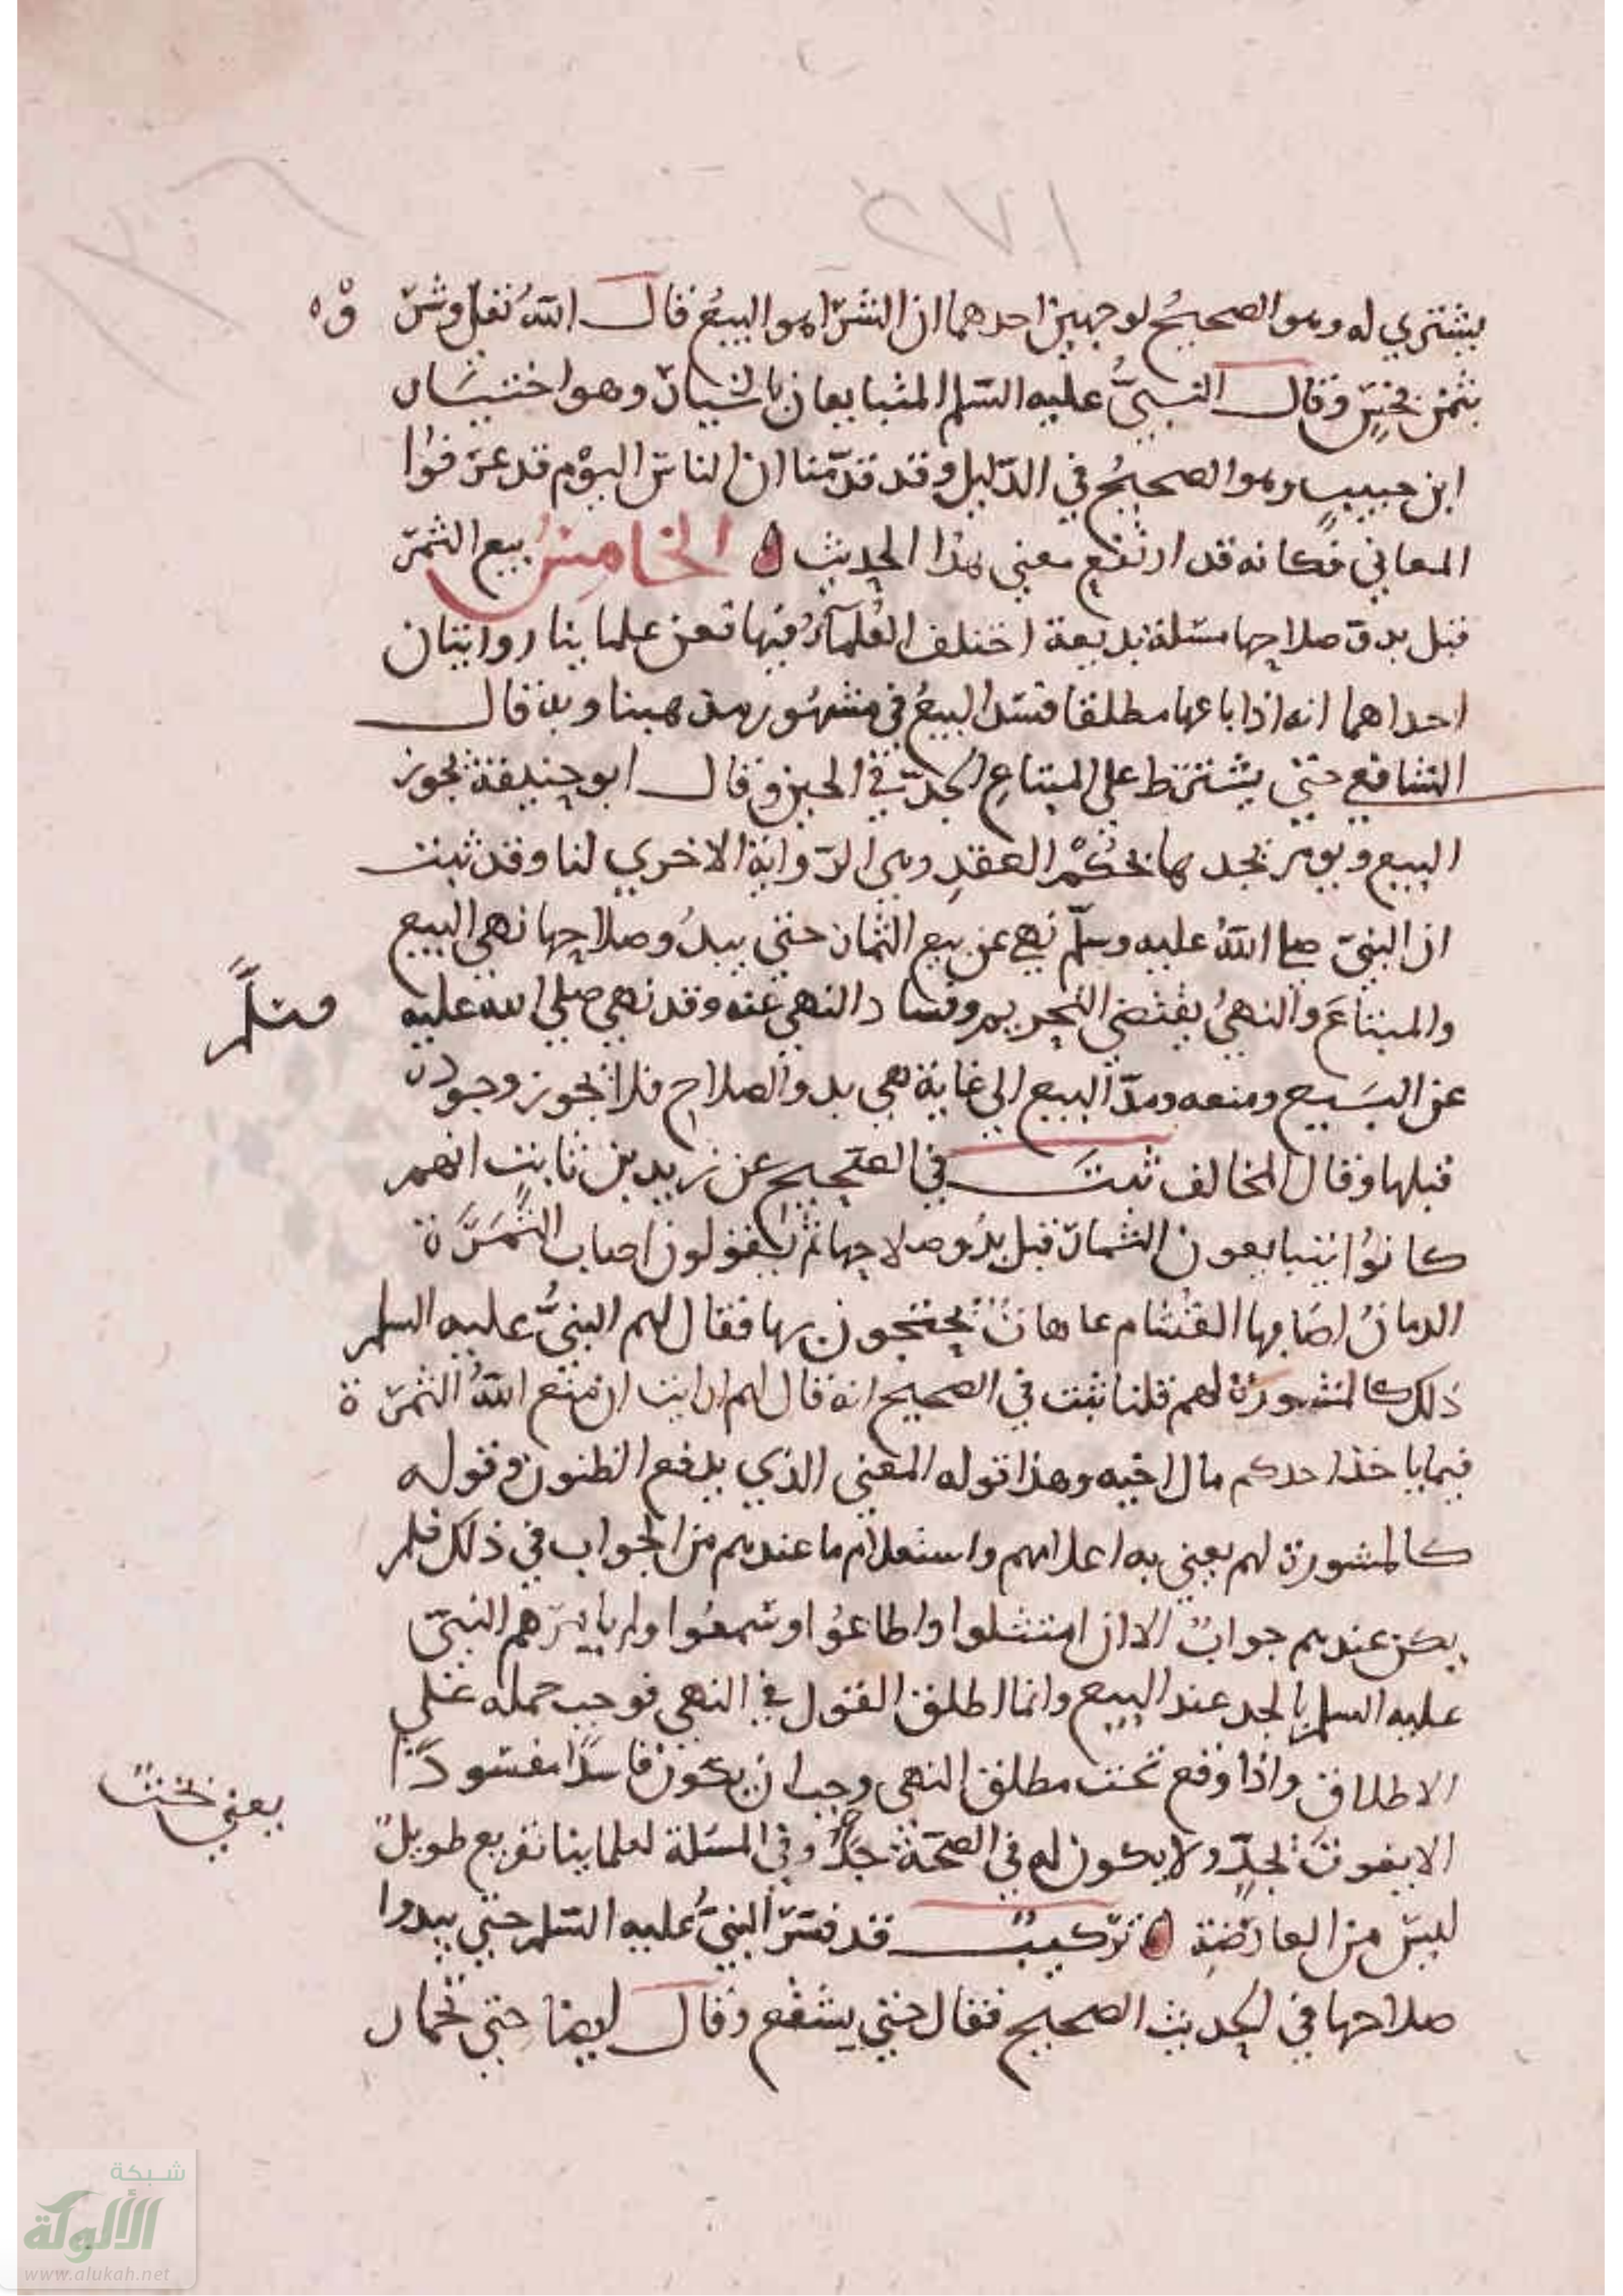 ١٧٢
يشتري له وهو الصحيح لوجهين احدهما ان الشرا هو البيع قال الله تعلى وشر وه
بثمن بخس وقال النبي عليه السلم المتبايعان بالخيار وهو اختيار
ابن حبيب وهو الصحيح في الدليل وقد قدمنا ان الناس اليوم قد عرفوا
المعاني فكانه قد ارتفع معنى هذا الحديث ه الخامس بيع الثمر
قبل بدو صلاحها مسئلة بديعة اختلف العلماء فيها فعن علماينا روايتان
احداهما انه اذا باعها مطلقا فسد البيع في مشهور مذهبنا وبه قال
الشافعي حتى يشترط على المبتاع الجد في الحين وقال ابو حنيفة يجوز
البيع ويومر بجدها بحكم العقد وهي الرواية الاخرى لنا وقد ثبت
ان النبي صلى الله عليه وسلم نهى عن بيع الثمار حتى يبدو صلاحها نهى البيع
والمبتاع والنهي يقتضي التحريم وفساد النهي عنه وقد نهى صلى الله عليه
وسلم
عن البيع ومنعه ومد البيع الى غاية هي بدو الصلاح فلا يجوز وجوده
قبلها وقال المخالف ثبت في الصحيح عن زيد بن ثابت انهم
كانوا يتبايعون الثمار قبل بدو صلاحها ثم يقولون اصاب الثمرة
الدمان اصابها القشام عاهات يحتجون بها فقال لهم النبي عليه السلم
ذلك كالمشورة لهم قلنا ثبت في الصحيح انه قال لهم ارايت ان منع الله الثمرة
فيما ياخذ احدكم مال اخيه وهذا قوله المعنى الذي يدفع الظنون وقوله
كالمشورة لهم يعني به اعلامهم واستعلام ما عندهم من الجواب في ذلك فلم
يكن عندهم جواب الا ان امتثلوا واطاعوا وسمعوا ولم يامرهم النبي
عليه السلم بالجد عند البيع وانما اطلق القول في النهي فوجب حمله على
الاطلاق واذا وقع تحت مطلق النهي وجب ان يكون فاسدا مفسودا
يعني تحت
الا بفوت لجد ولا يكون له في الصحة جد وفي المسئلة لعلماينا تفريع طويل
ليس من العارضة ه تركيب قد فسر النبي عليه السلم حتى يبدوا
صلاحها في الحديث الصحيح فقال حتى يشقح وقال ايضا حتى تحمار
شبكة
الألوكة
www.alukah.net